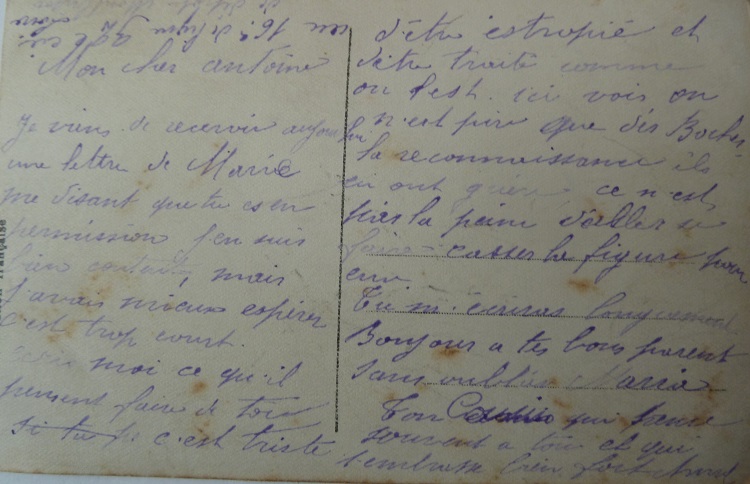 Mon cher antoine
Je viens de recevoir aujourdhui
une lettre de Marie
me disant que tu es en
permission j'en suis
bien content, mais
j'avais mieux espérer
c'est trop court.
moi ce qu'il
pensent faire de toi
si tu c'est triste
d'être estropié et
d'être traité comme
on l'est. ici vois on
n'est pire que des Boches
la reconnaissance ils
en ont guère ce n'est
pas la peine d'aller se
faire casser la figure pour
eux
Tu m'écriras longuement
Bonjour a tes bons parent
sans oublier Marie
Ton Cousin qui pense
souvent a toi et qui
t'embrasse bien fort
française